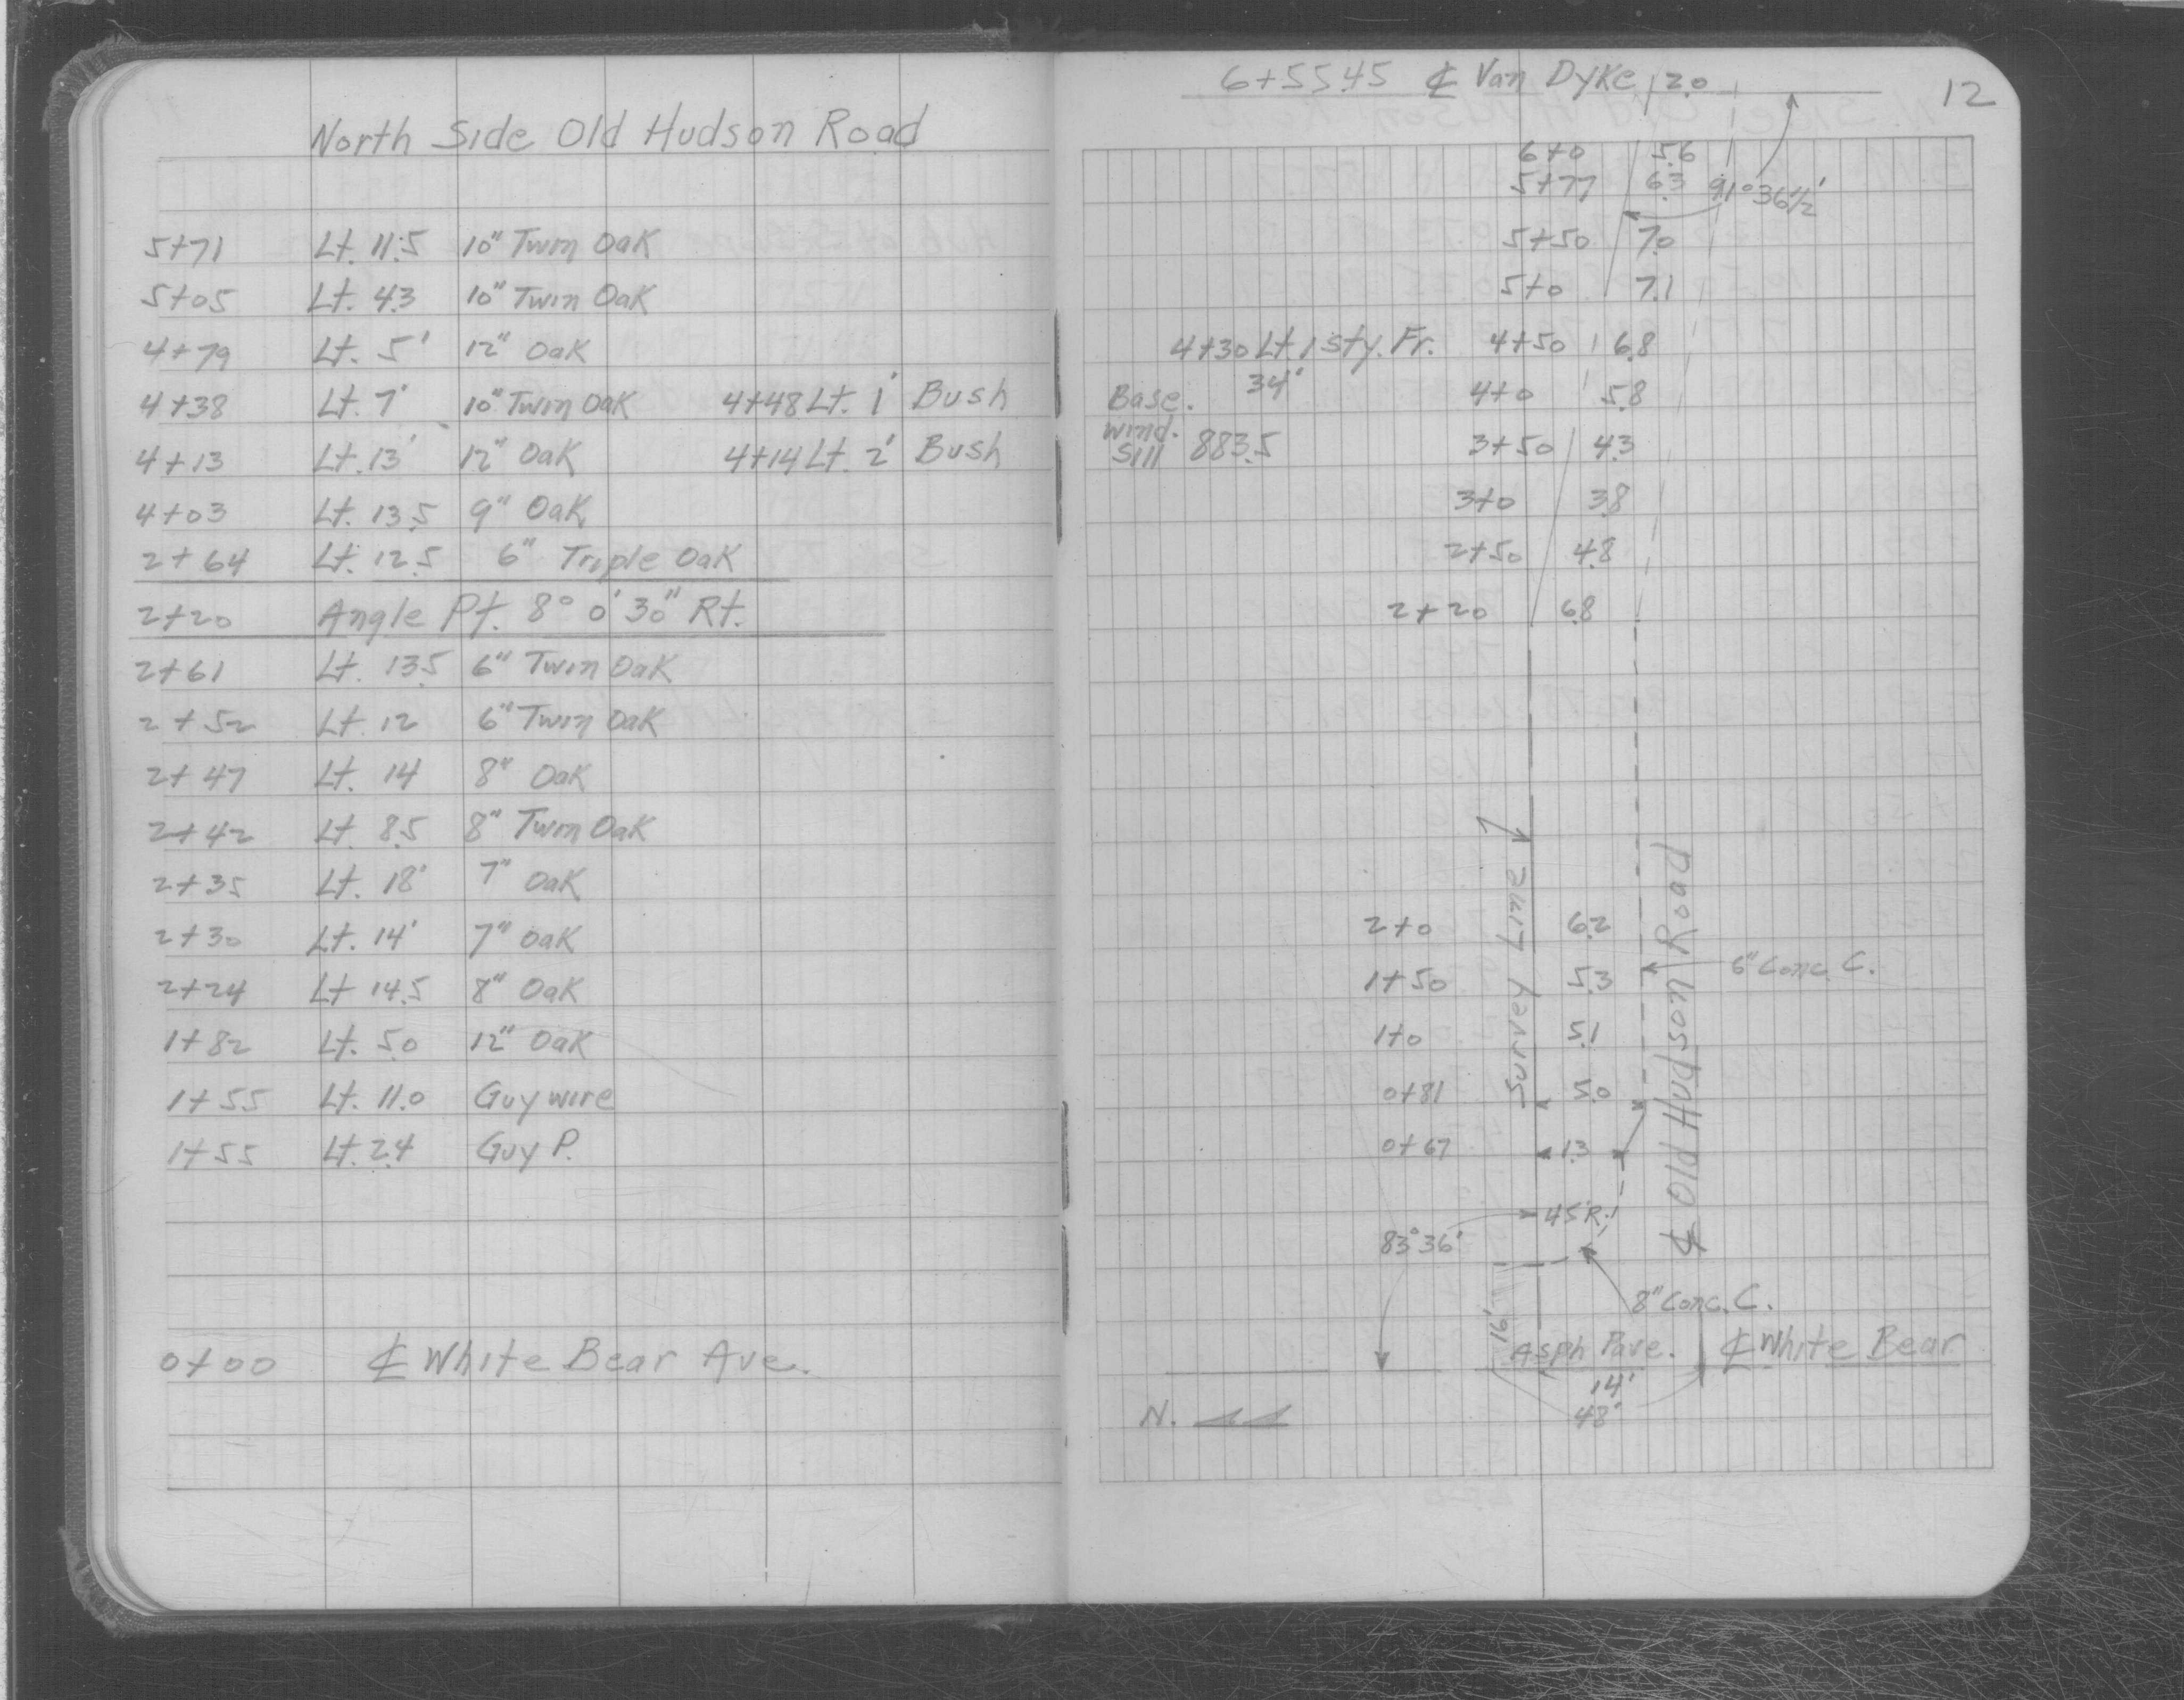 North Side Old Hudson Road
5+71 Lt. 11.5 10" Twin Oak
5+05 Lt. 4.3 10" Twin Oak
4+79 Lt. 5' 12" Oak
4+38 Lt. 7' 10" Twin Oak 4+48 Lt. 1' Bush
4+13 Lt. 13' 12" Oak 4+14 Lt. 2' Bush
4+03 Lt. 13.5 9" Oak
2+64 Lt. 12.5 6" Triple Oak
2+20 Angle Pt. 8° 0' 30" Rt.
2+61 Lt. 13.5 6" Twin Oak
2+52 Lt. 12 6" Twin Oak
2+47 Lt. 14 8" Oak
2+42 Lt. 8.5 8" Twin Oak
2+35 Lt. 18' 7" Oak
2+30 Lt. 14' 7" Oak
2+24 Lt 14.5 8" Oak
1+82 Lt. 5.0 12" Oak
1+55 Lt. 11.0 Guy wire
1+55 Lt. 2.4 Guy P.
0+00 ℄ White Bear Ave.
12
6+55.45 ℄ Van Dyke 2.0
6+0 5.6
5+77 6.3 91°36½'
5+50 7.0
5+0 7.1
4+30 Lt. 1 sty. Fr. 4+50 6.8
34'
Base. 4+0 5.8
wind.
Sill 883.5 3+50 4.3
3+0 3.8
2+50 4.8
2+20 6.8
Survey Line
℄ Old Hudson Road
2+0 6.2
6" Conc. C.
1+50 5.3
1+0 5.1
0+81 5.0
0+67 1.3
45' R.
83°36'
8" Conc. C.
16'
Asph Pave. ℄ White Bear
14'
48'
N.